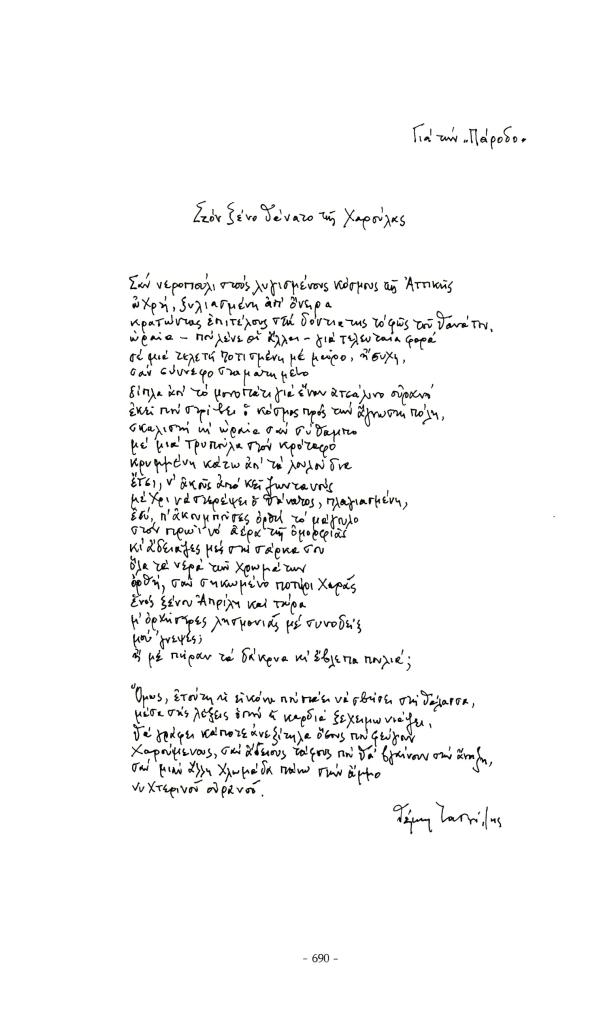 Γιά τήν „Πάροδο„
Στόν ξένο θάνατο τῆς Χαρούλας
Σάν νεροπούλι στούς λυγισμένους κόσμους τῆς Ἀττικῆς
ὠχρή, ξυλιασμένη ἀπ' ὄνειρα
κρατώντας ἐπιτέλους στά δόντια της τό φῶς τοῦ θανάτου,
ὡραία – πού λένε οἱ ἄλλοι – γιά τελευταία φορά
σέ μιά τελετή ποτισμένη μέ μαῦρο, ἥσυχη,
σάν σύννεφο σταματημένο
δίπλα ἀπ' τό μονοπάτι γιά ἕναν ἀτσάλινο οὐρανό
ἐκεῖ πού στρίβει ὁ κόσμος πρός τήν ἄγνωστη πόλη,
σκαλιστή κι ὡραία σάν σύθαμπο
μέ μιά τρυπούλα στόν κρόταφο
κρυμμένη κάτω ἀπ' τά λουλούδια
ἔτσι, ν' ἀκοῦς ἀπό κεῖ ζωντανούς
μέχρι νά στερέψει ὁ θάνατος, πλαγιασμένη,
ἐσύ, π' ἀκουμποῦσες ὀρθή τό μάγουλο
στόν πρωϊνό ἀέρα τῆς ὀμορφιᾶς
κι ἄδειαζες μές στή σάρκα σου
ὅλα τά νερά τῶν χρωμάτων
ὀρθή, σάν σηκωμένο ποτήρι χαρᾶς
ἑνός ξένου Ἀπρίλη καί τώρα
μ' ὀρχῆστρες λησμονιᾶς μέ συνοδεία
μοῦ 'γνεψες;
ἤ μέ πῆραν τά δάκρυα κι ἔβλεπα πουλιά;
Ὅμως, ἐτούτη ἡ εἰκόνα πού πάει νά σβήσει στή θάλασσα,
μέσα στίς λέξεις ὅπου ἡ καρδιά ξεχειμωνιάζει,
θά γράφει κάποτε ἀνεξίτηλα ὅσους πού φεύγουν
χαρούμενους, σάν ἄδειους τάφους πού θά βγαίνουν στήν ἄνοιξη,
σάν μιάν ἄλλη χλωμάδα πάνω στήν ἄμμο
νυχτερινοῦ οὐρανοῦ.
- 690 -